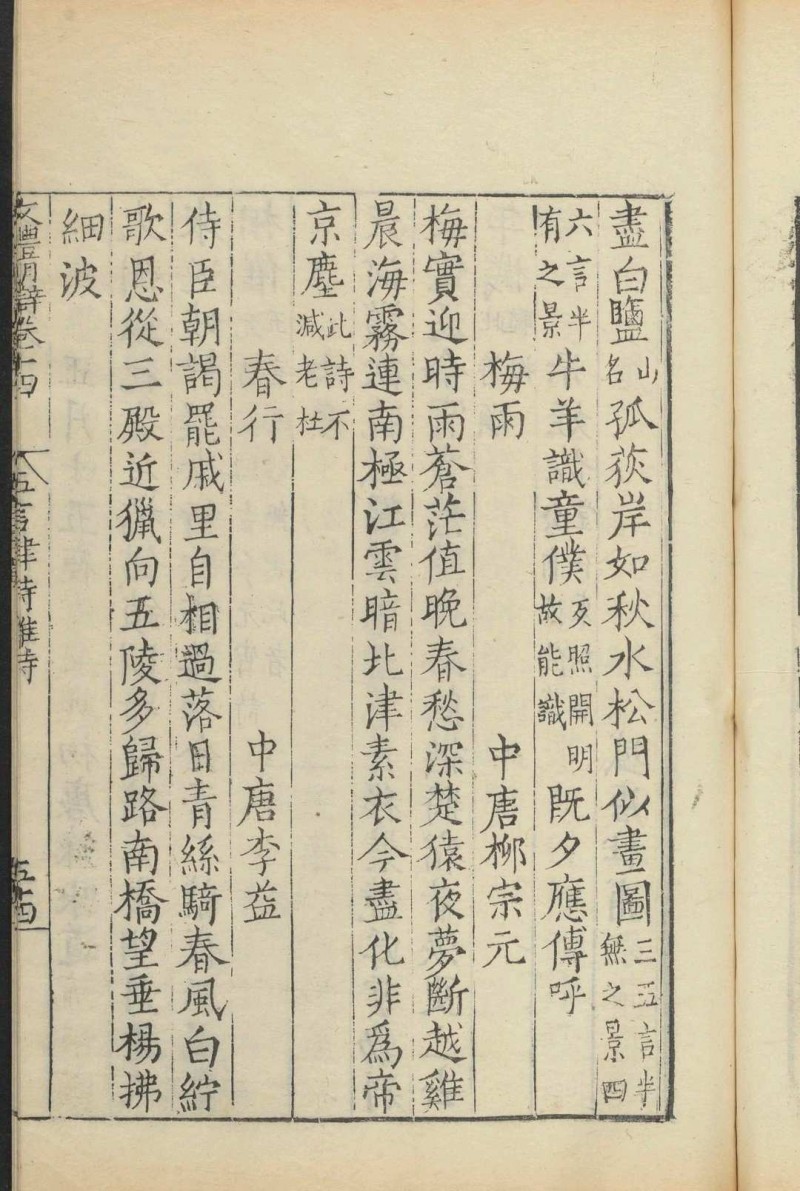 盡白鹽山名孤荻岸如秋水松門似畫圖三五言半無之景四
六言半有之景牛羊識童僕反照開明故能識既夕應傳呼
梅雨　中唐柳宗元
梅實迎時雨蒼茫值晚春愁深楚猿夜夢斷越雞
晨海霧連南極江雲暗北津素衣今盡化非爲帝
京塵此詩不減老杜
春行　中唐李益
侍臣朝謁罷戚里自相過落日青絲騎春風白紵
歌恩從三殿近獵向五陵多歸路南橋望垂楊拂
細波
文體明辯卷十四　五言律詩雜詩　五四